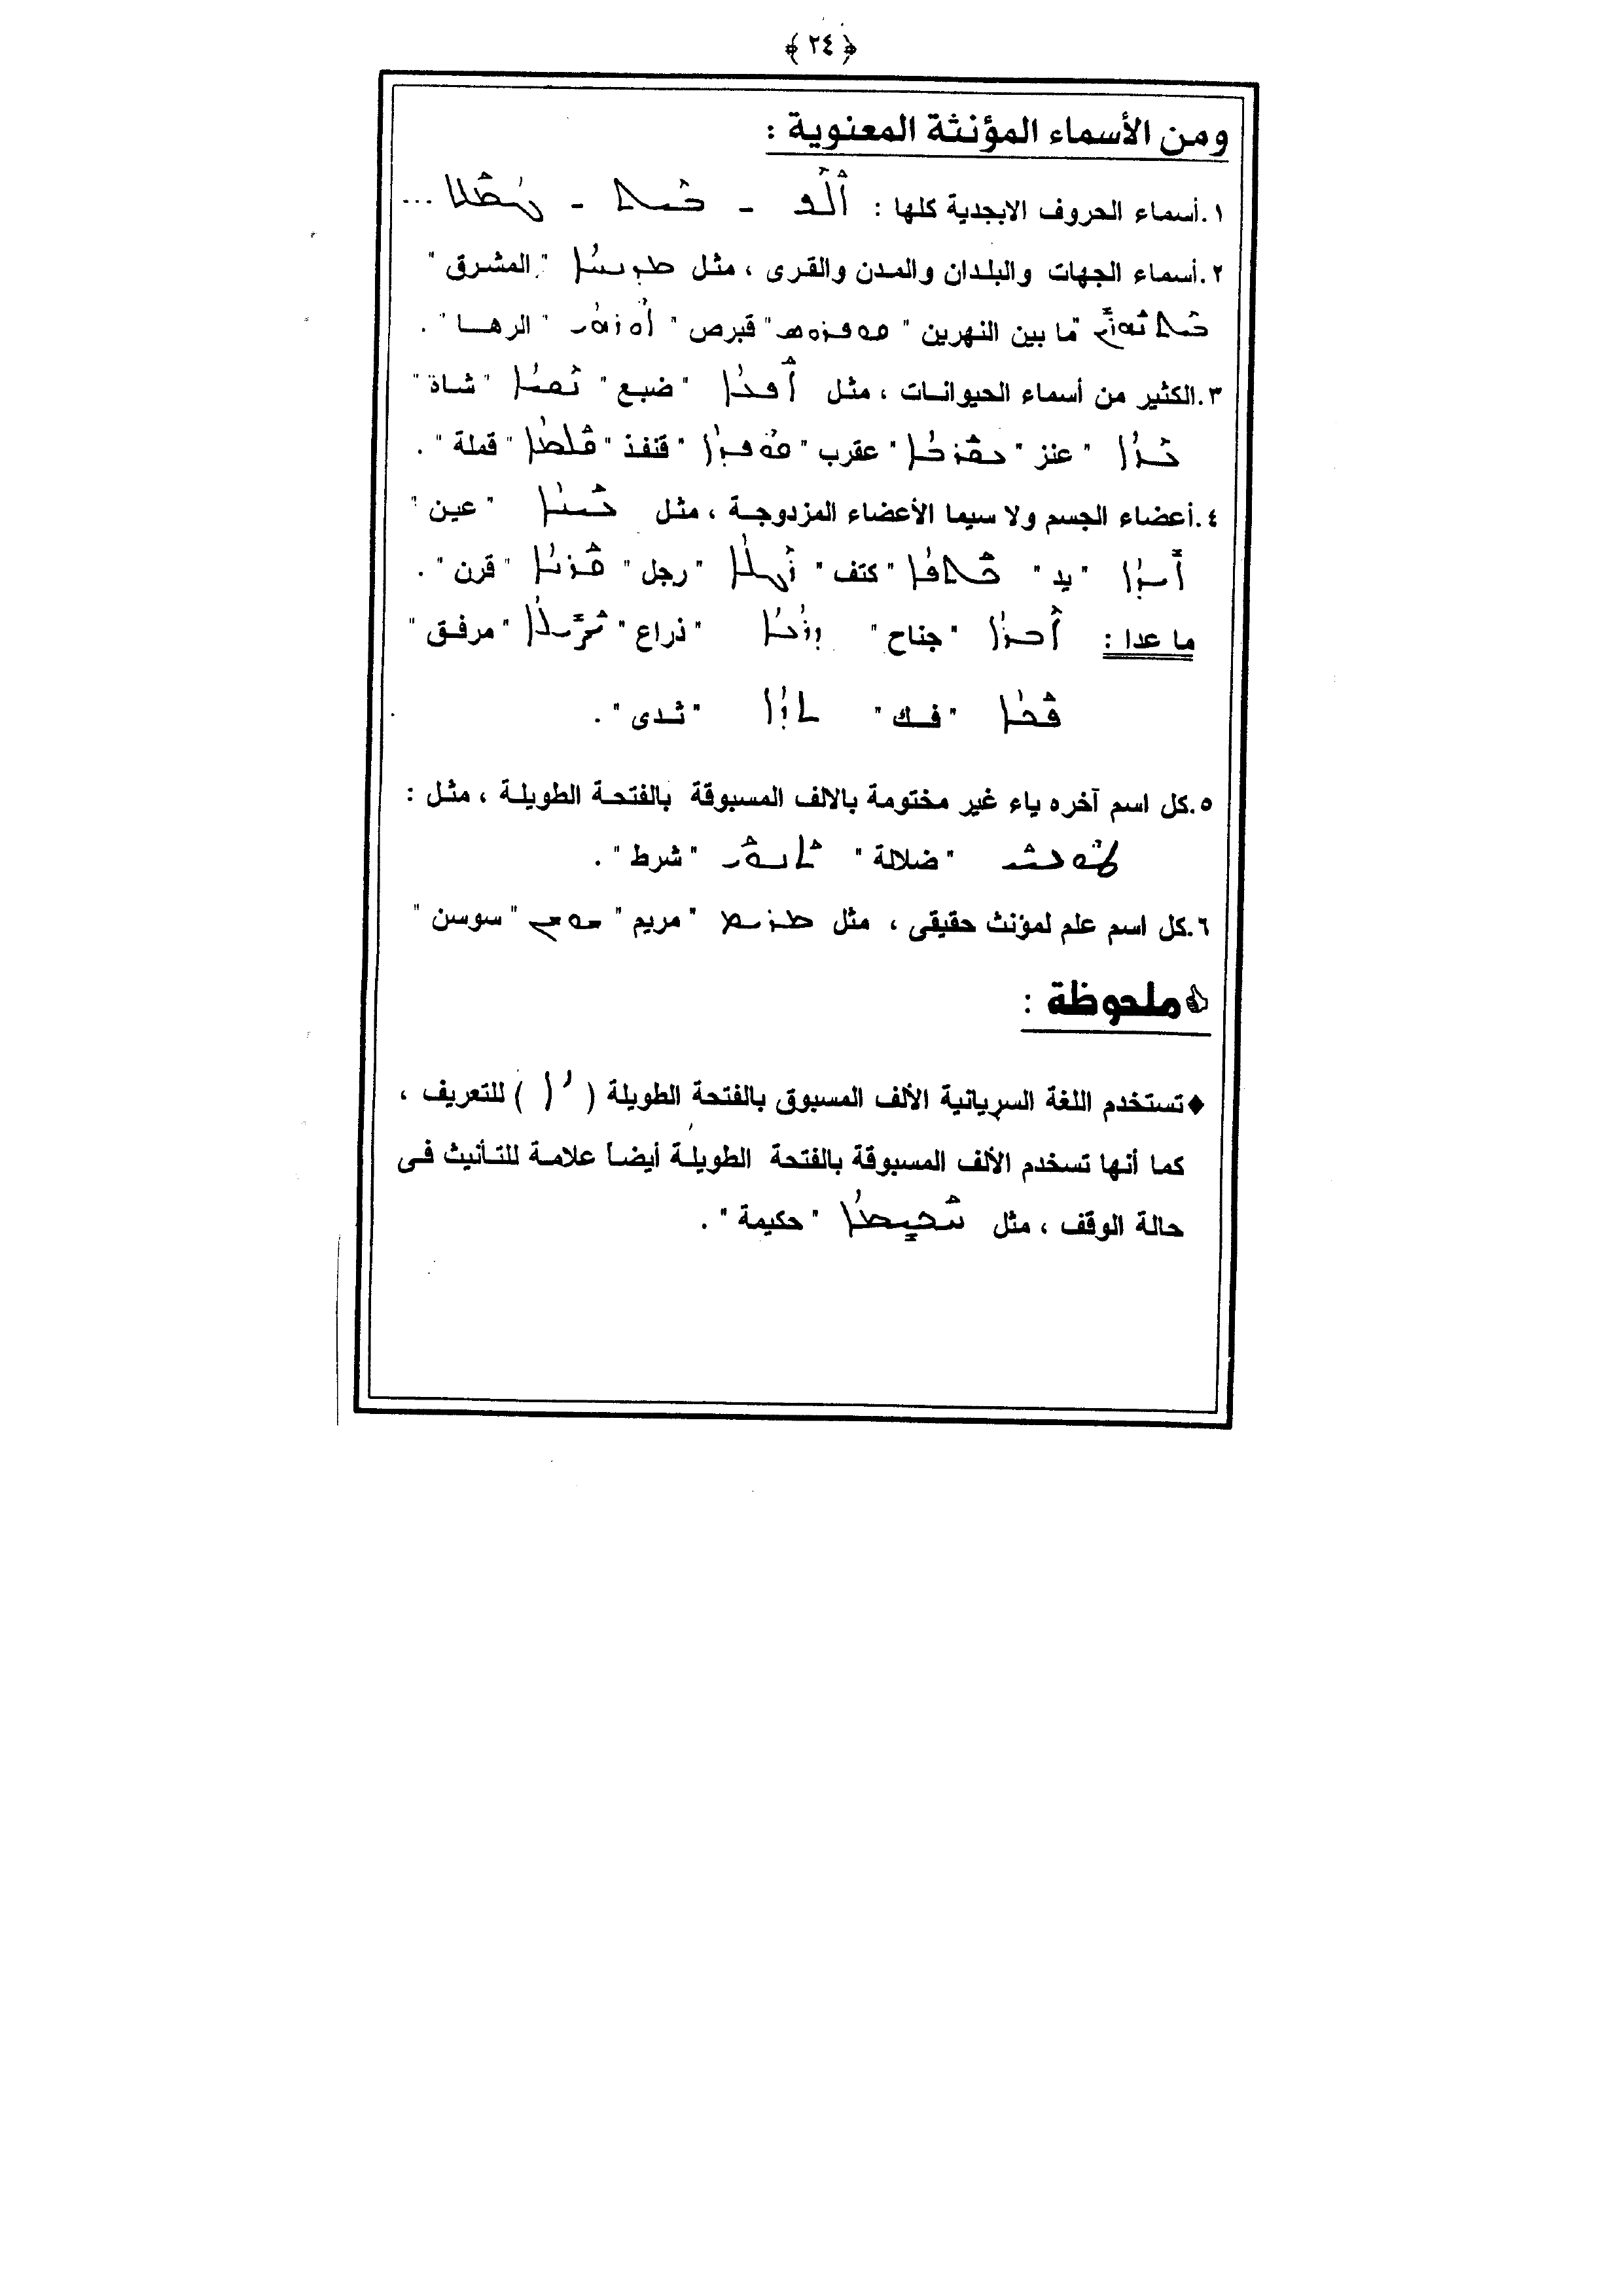 ﴿ ٢٤ ﴾
ومن الأسماء المؤنثة المعنوية :
١.أسماء الحروف الابجدية كلها : ܐܠܦ - ܒܝܬ - ܓܡܠ ...
٢.أسماء الجهات والبلدان والمدن والقرى ، مثل ܡܕܢܚܐ " المشرق "
ܒܝܬ ܢܗܪܝܢ "ما بين النهرين " ܩܘܦܪܘܣ " قبرص " ܐܘܪܗܝ " الرها " .
٣.الكثير من أسماء الحيوانات ، مثل ܐܦܥܐ " ضبع " ܢܩܝܐ " شاة "
ܥܙܐ " عنز " ܥܩܪܒܐ " عقرب " ܩܘܦܕܐ " قنفذ " ܩܠܡܐ " قملة " .
٤.أعضاء الجسم ولا سيما الأعضاء المزدوجة ، مثل ܥܝܢܐ " عين "
ܐܝܕܐ " يد " ܟܬܦܐ " كتف " ܪܓܠܐ " رجل " ܩܪܢܐ " قرن " .
ما عدا : ܐܒܪܐ " جناح " ܕܪܥܐ " ذراع " " مرفق "
ܦܟܐ " فك " ܬܕܐ " ثدى " .
٥.كل اسم آخره ياء غير مختومة بالالف المسبوقة بالفتحة الطويلة ، مثل :
ܛܘܥܝܝ " ضلالة " ܬܢܘܝ " شرط " .
٦.كل اسم علم لمؤنث حقيقى ، مثل ܡܪܝܡ " مريم " ܫܘܫܢ " سوسن "
ملحوظة :
♦تستخدم اللغة السريانية الألف المسبوق بالفتحة الطويلة ( ܳܐ ) للتعريف ،
كما أنها تسخدم الألف المسبوقة بالفتحة الطويلة أيضاً علامة للتأنيث فى
حالة الوقف ، مثل ܚܟܝܡܐ " حكيمة " .